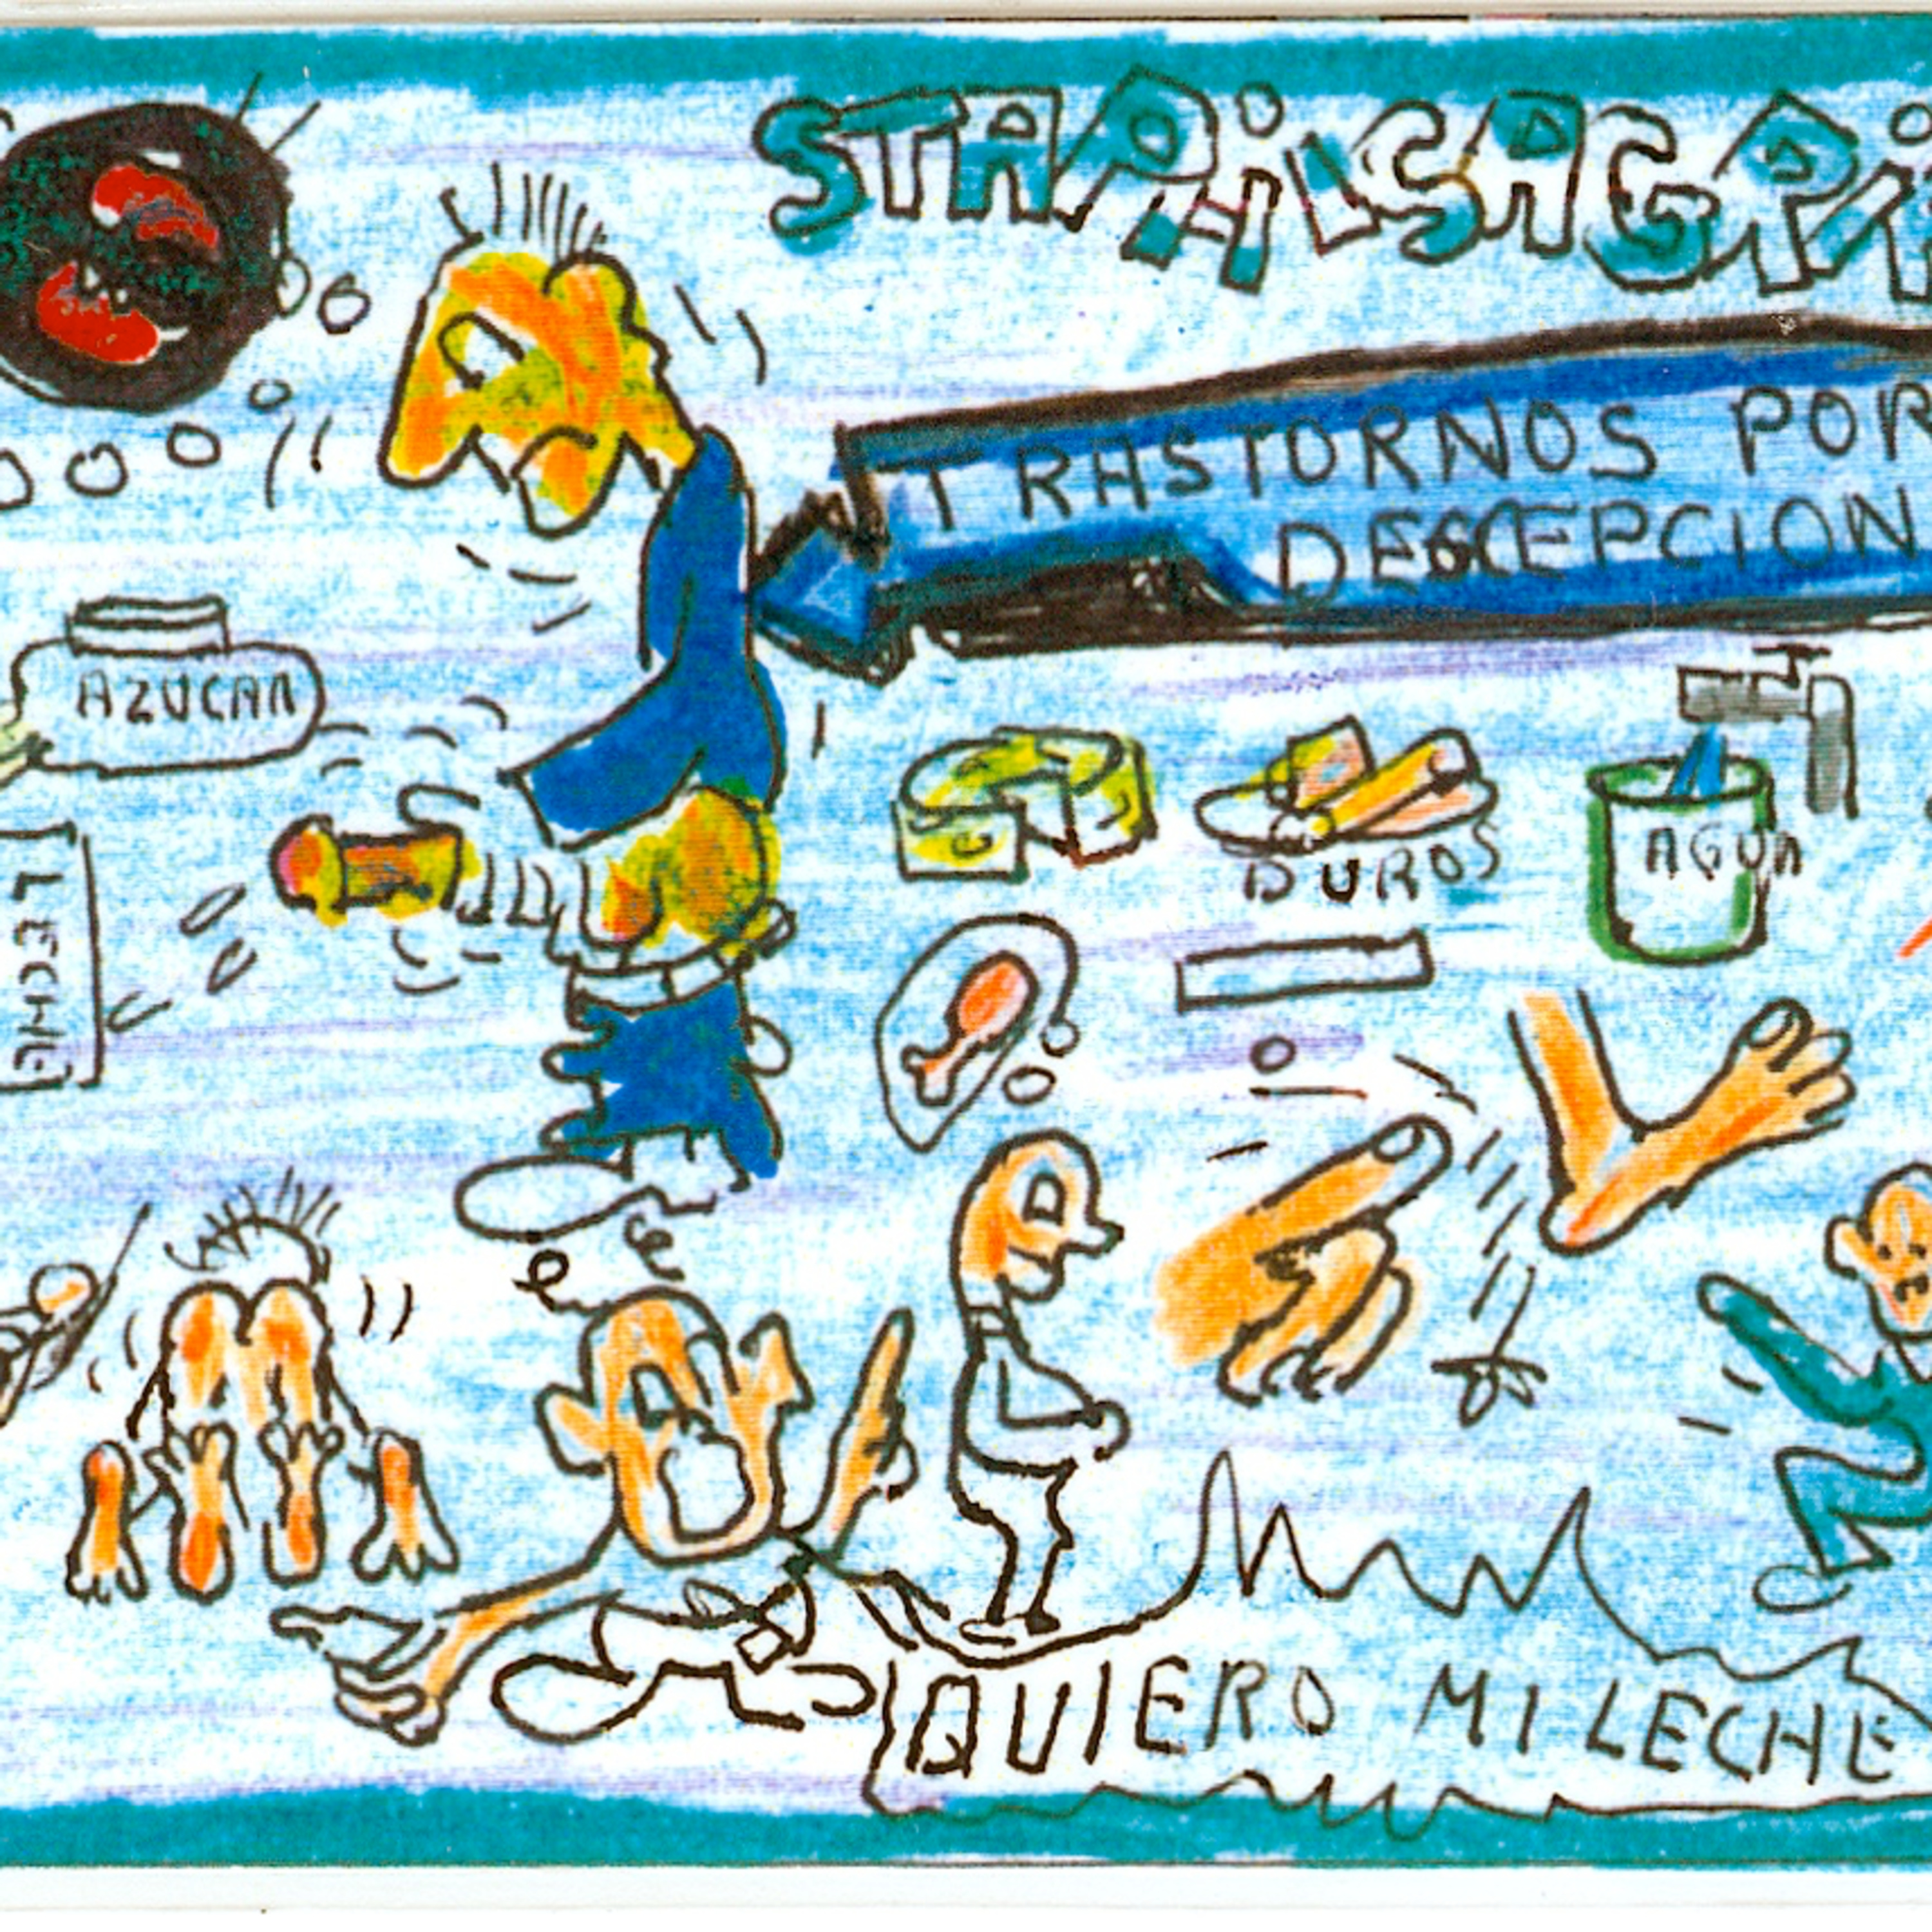 STAPHiLSAGRi
TRASTORNOS POR
DECEPCION
AZUCAR
LECHE
DUROS
AGUA
QUIERO MI LECHE